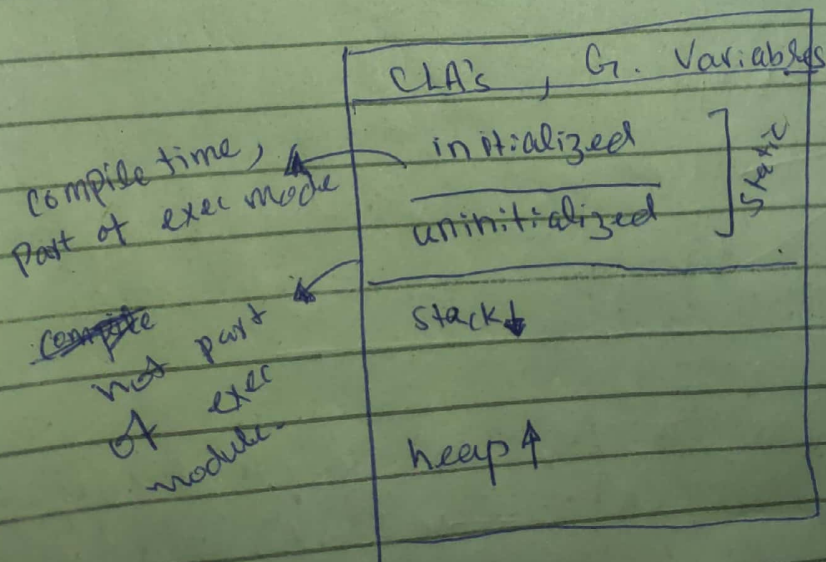 CLA's , G. Variables
initialized
uninitialized
Static
compile time,
part of exec mode
stack↓
compile
not part
of exec
module.
heap↑